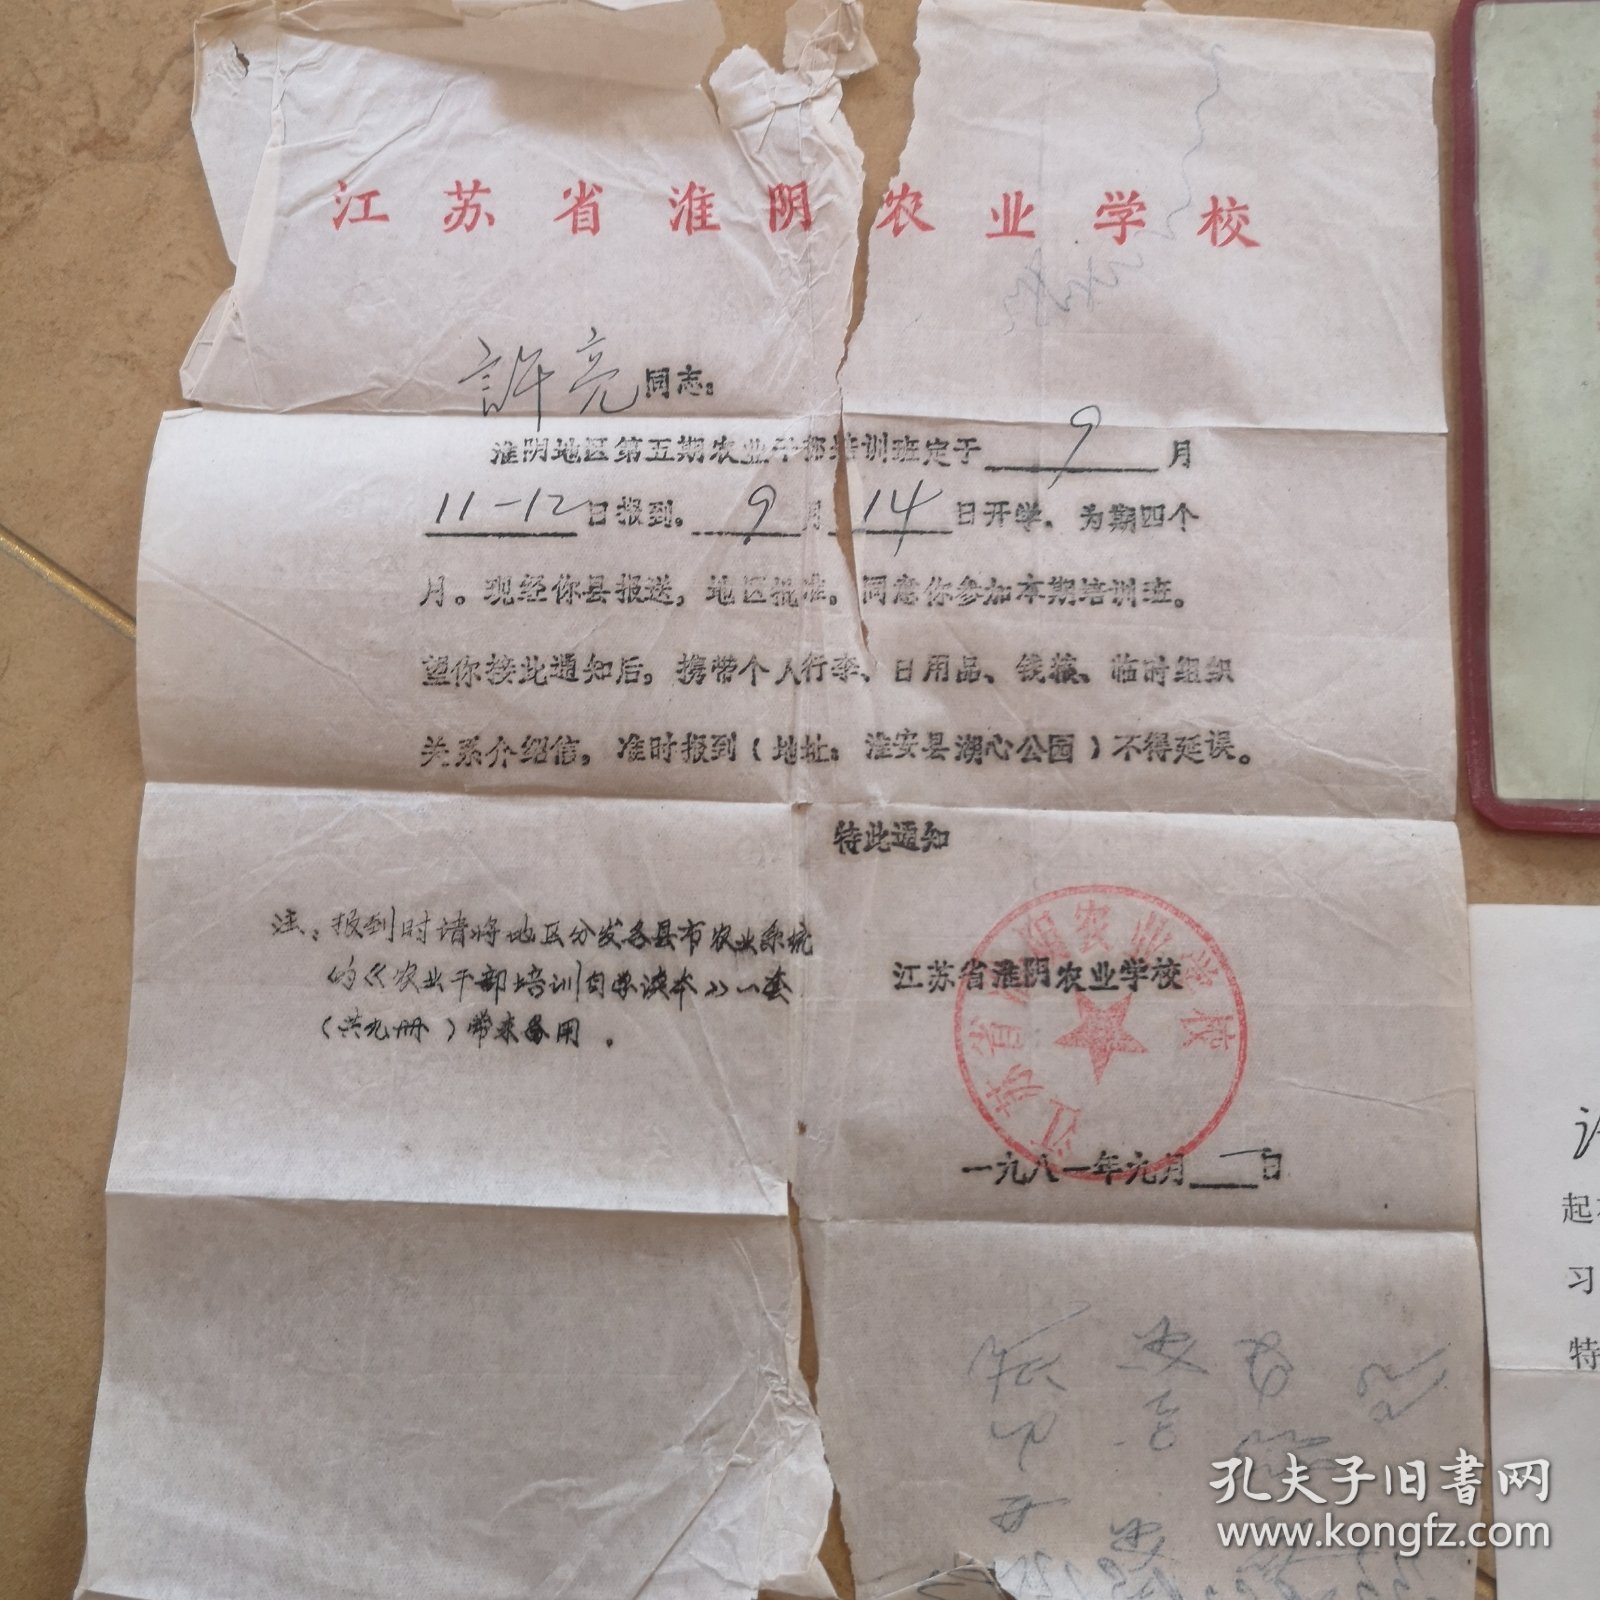 江苏省淮阴农业学校
許亮同志：
淮阴地区第五期农业干部培训班定于 9 月
11-12日报到。9月14日开学。为期四个
月。现经你县报送，地区批准。同意你参加本期培训班。
望你接此通知后，携带个人行李、日用品、钱粮、临时组织
关系介绍信，准时报到（地址：淮安县湖心公园）不得延误。
特此通知
注：报到时请将地区分发各县市农业系统
的《农业干部培训自学读本》一套
（共九册）带来备用。
江苏省淮阴农业学校
江苏省淮阴农业学校
一九八一年九月一日
起
习
特
孔夫子旧书网
www.kongfz.com